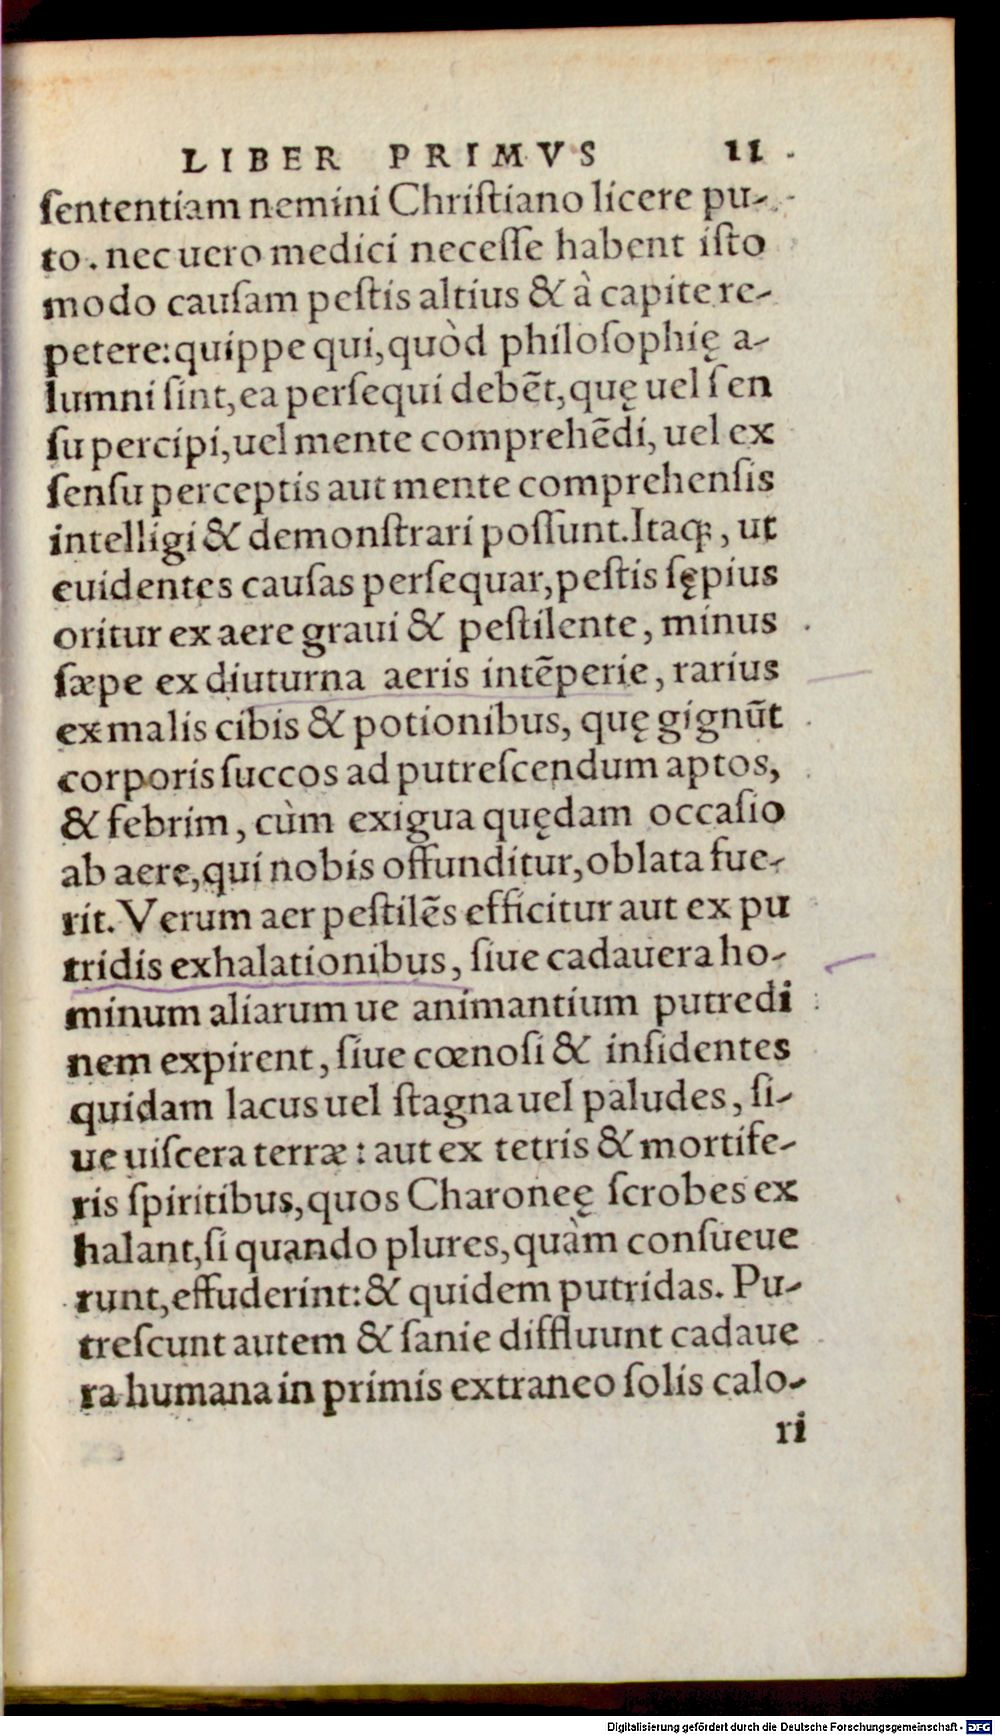 LIBER PRIMVS 11
ſententiam nemini Chriſtiano licere pu-
to. nec uero medici neceſſe habent iſto
modo cauſam peſtis altius & à capite re-
petere: quippe qui, quòd philoſophię a-
lumni ſint, ea perſequi debēt, quę uel ſen
ſu percipi, uel mente comprehēdi, uel ex
ſenſu perceptis aut mente comprehenſis
intelligi & demonſtrari poſſunt. Itaq;, ut
euidentes cauſas perſequar, peſtis ſępius
oritur ex aere graui & peſtilente, minus
ſæpe ex diuturna aeris intēperie, rarius
ex malis cibis & potionibus, quę gignūt
corporis ſuccos ad putreſcendum aptos,
& febrim, cùm exigua quędam occaſio
ab aere, qui nobis offunditur, oblata fue-
rit. Verum aer peſtilēs efficitur aut ex pu
tridis exhalationibus, ſiue cadauera ho-
minum aliarum ue animantium putredi
nem expirent, ſiue cœnoſi & inſidentes
quidam lacus uel ſtagna uel paludes, ſi-
ue uiſcera terræ: aut ex tetris & mortife-
ris ſpiritibus, quos Charoneę ſcrobes ex
halant, ſi quando plures, quàm conſueue
runt, effuderint: & quidem putridas. Pu-
treſcunt autem & ſanie diffluunt cadaue
ra humana in primis extraneo ſolis calo-
ri
Digitalisierung gefördert durch die Deutsche Forschungsgemeinschaft - DFG